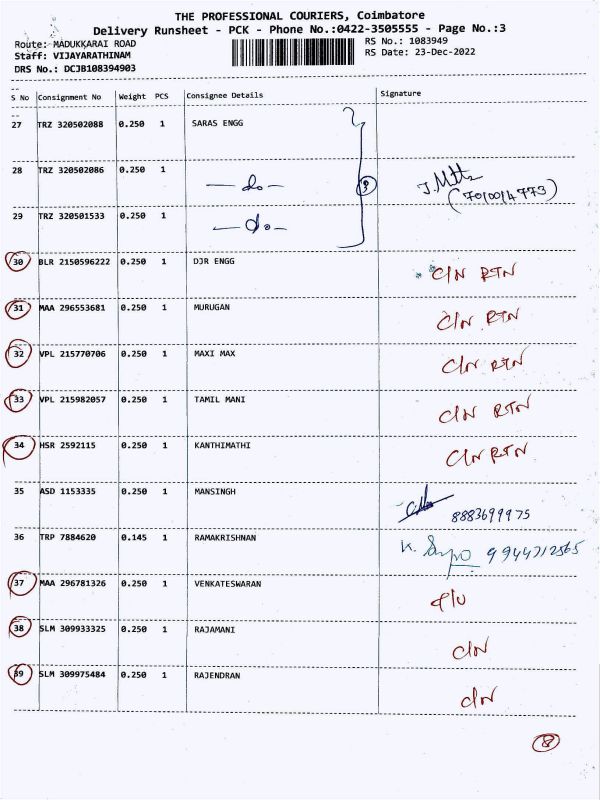 THE PROFESSIONAL COURIERS, Coimbatore
Delivery Runsheet - PCK - Phone No.:0422-3505555 - Page No.:3
Route: MADUKKARAI ROAD RS No.: 1083949
Staff: VIJAYARATHINAM RS Date: 23-Dec-2022
DRS No.: DCJB108394903
S No Consignment No Weight PCS Consignee Details Signature
27 TRZ 320502088 0.250 1 SARAS ENGG
28 TRZ 320502086 0.250 1 -do-
29 TRZ 320501533 0.250 1 -do-
30 BLR 2150596222 0.250 1 DJR ENGG C/N RTN
31 MAA 296553681 0.250 1 MURUGAN C/N RTN
32 VPL 215770706 0.250 1 MAXI MAX C/N RTN
33 VPL 215982057 0.250 1 TAMIL MANI C/N RTN
34 HSR 2592115 0.250 1 KANTHIMATHI C/N RTN
35 ASD 1153335 0.250 1 MANSINGH 8883699975
36 TRP 7884620 0.145 1 RAMAKRISHNAN 9944712565
37 MAA 296781326 0.250 1 VENKATESWARAN
38 SLM 309933325 0.250 1 RAJAMANI C/N
39 SLM 309975484 0.250 1 RAJENDRAN C/N
8